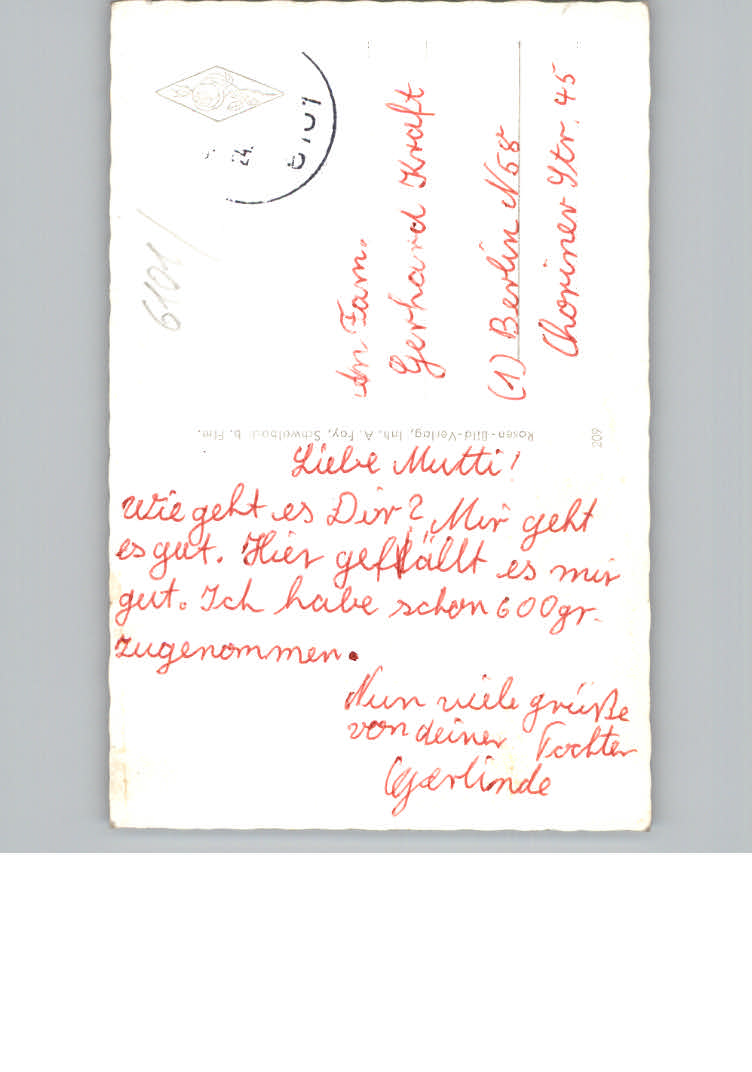 Liebe Mutti!
Wie geht es Dir? Mir geht
es gut. Hier gefällt es mir
gut. Ich habe schon 600gr.
zugenommen.
Nun viele grüße
von deiner Tochter
Gerlinde
An Fam.
Gerhard Kraft
(1) Berlin N58
Choriner Str. 45
Rosen-Bild-Verlag, Inh. A. Fay, Schwalbach b. Ffm.
209
6101/
24.